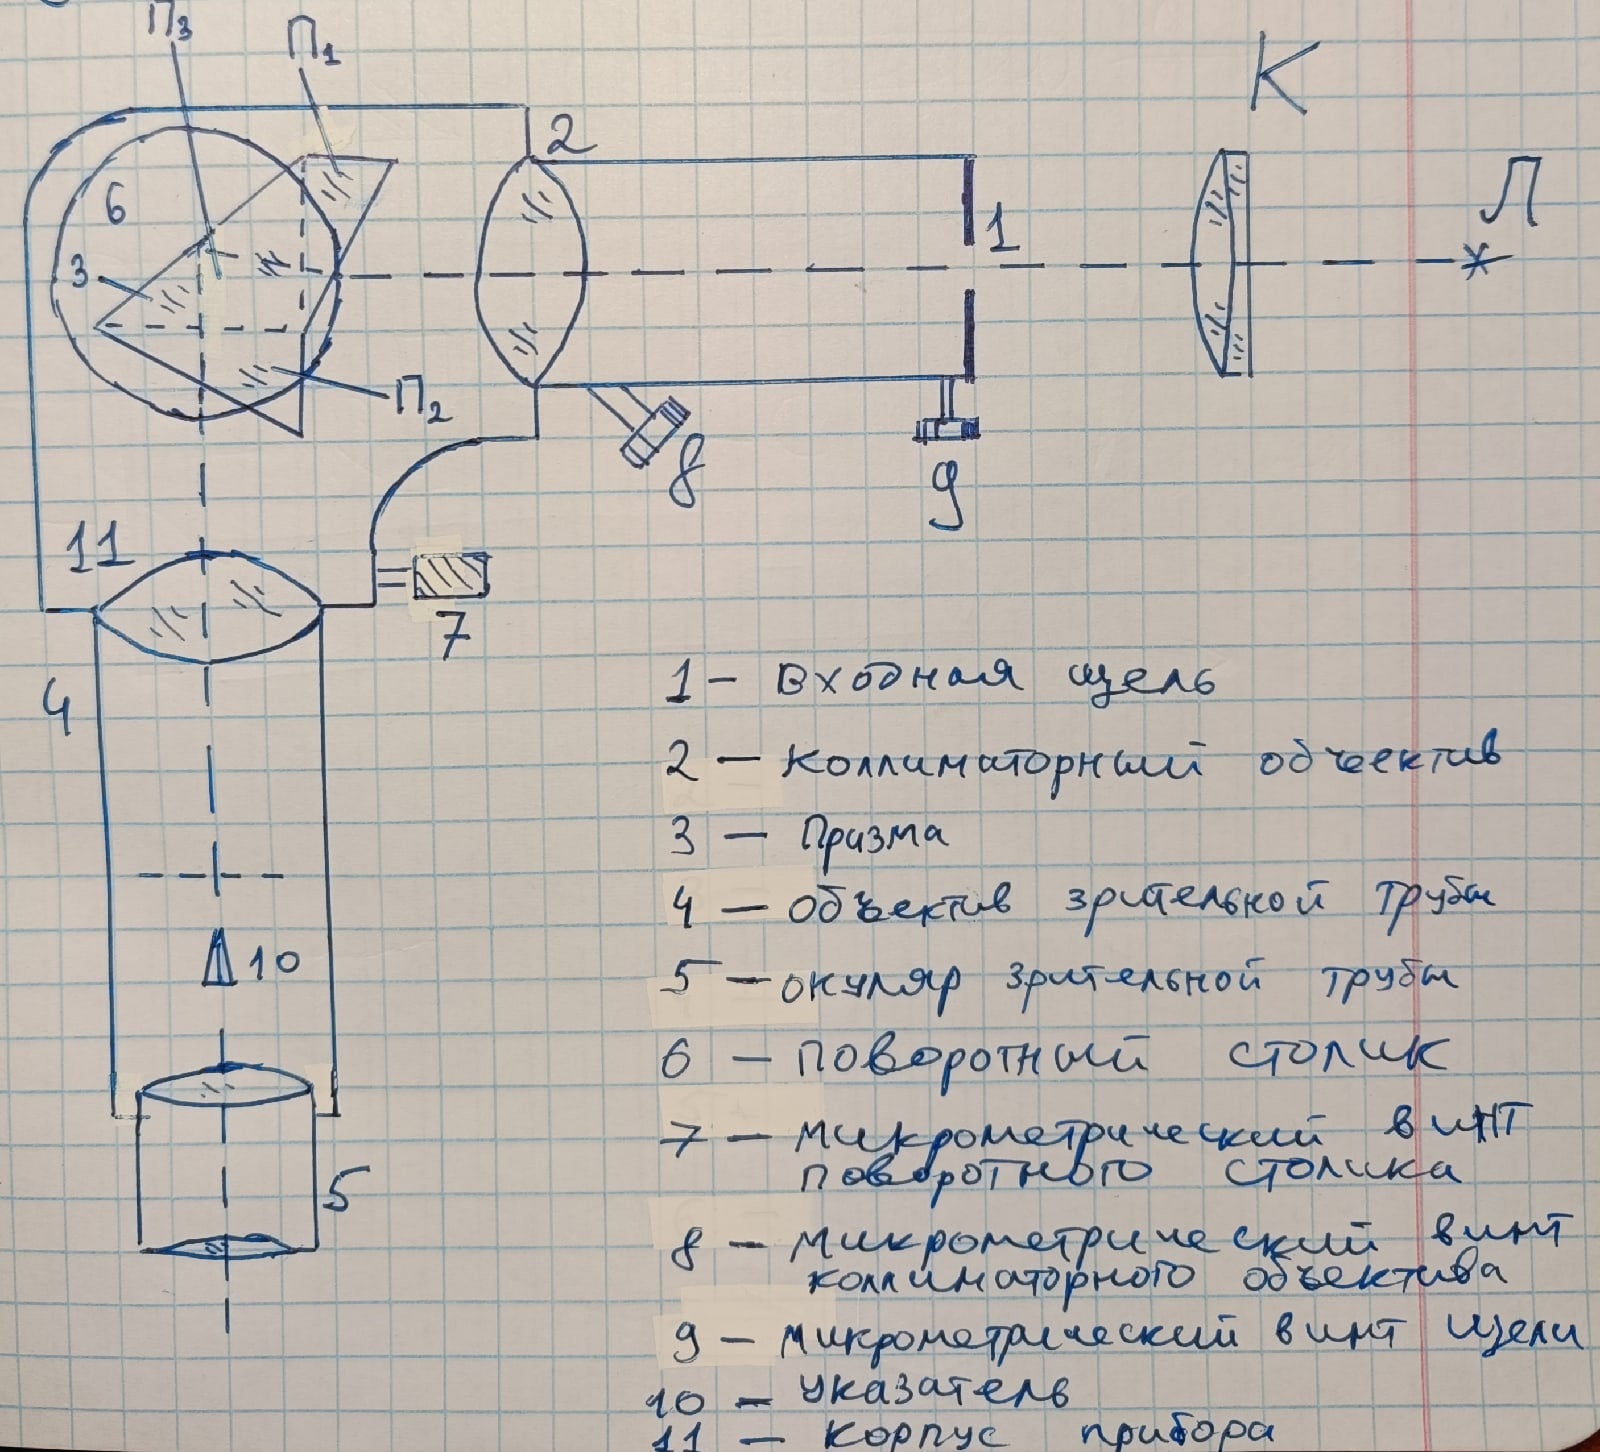 П₃
П₁
К
2
6
1
Л
3
П₂
8
9
11
7
4
1 – Входная щель
2 – Коллиматорный объеектив
3 – Призма
4 – Объектив зрительной трубы
10
5 – окуляр зрительной трубы
6 – поворотный столик
7 – микрометрический винт
поворотного столика
5
8 – микрометрический винт
коллиматорного объектива
9 – микрометрический винт щели
10 – указатель
11 – корпус прибора